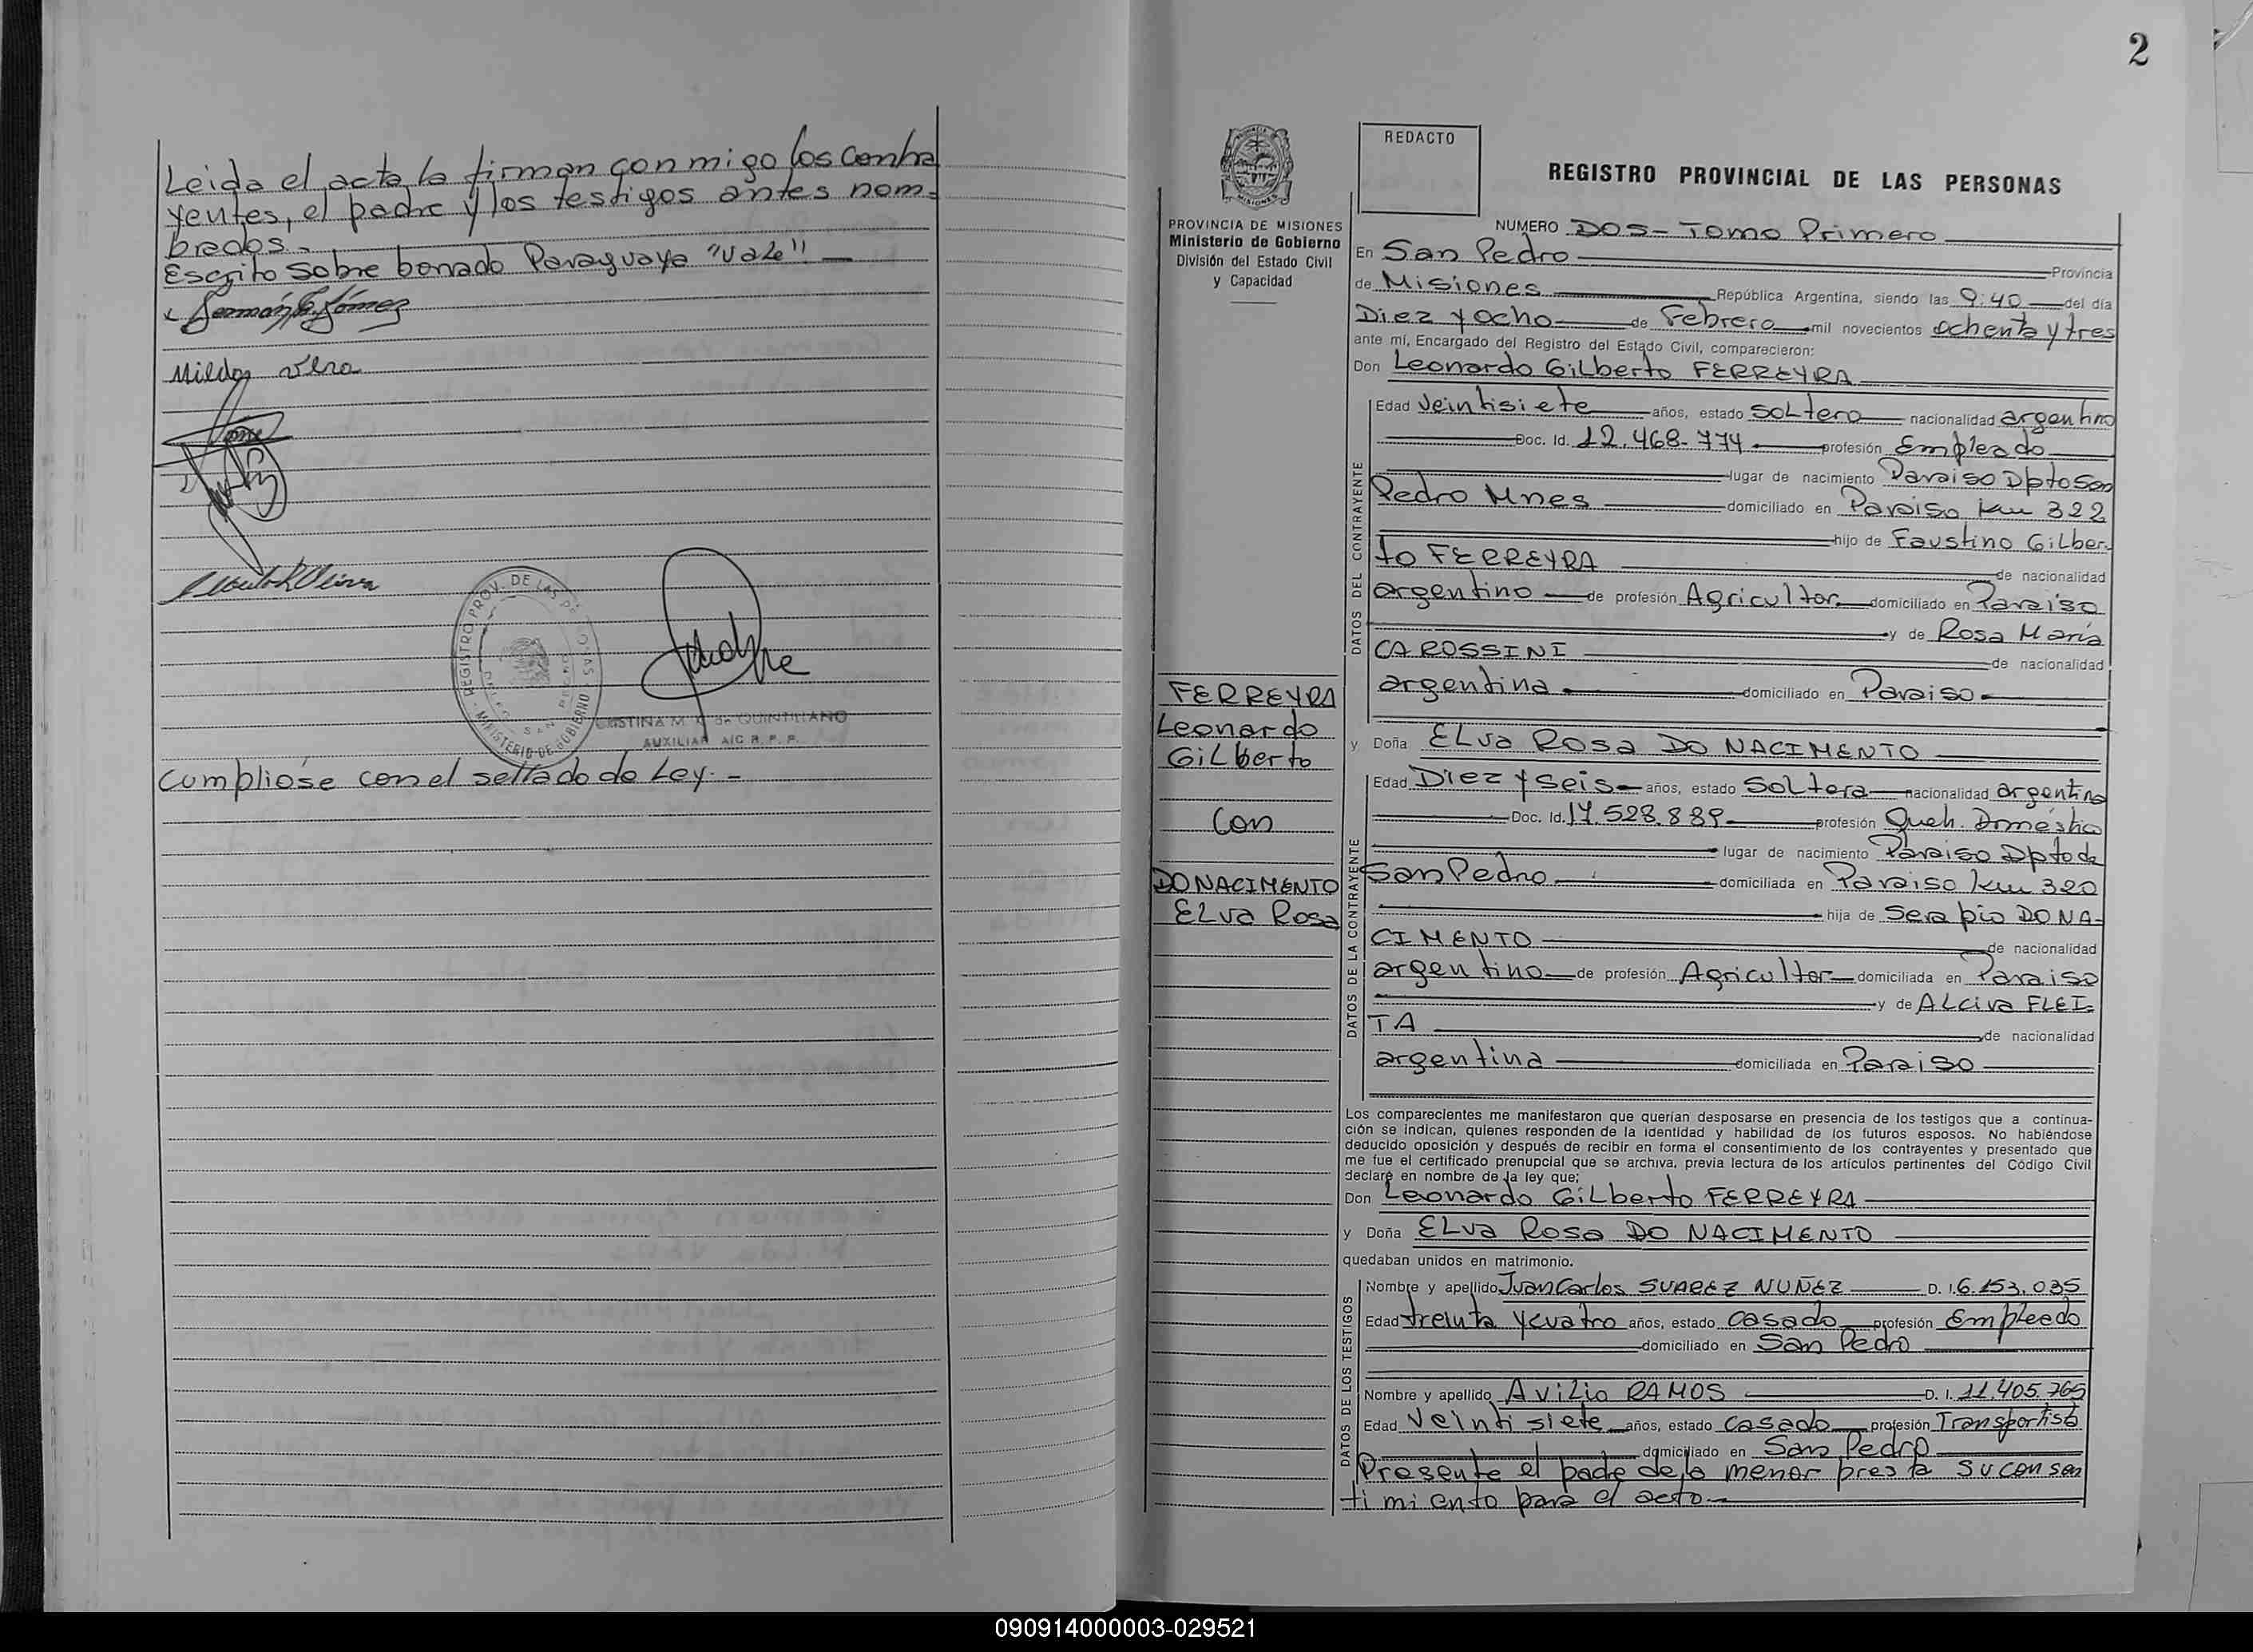 Leida el acta la firman conmigo los contra
yentes, el padre y los testigos antes nom=
brados.-
Escrito sobre borrado Paraguaya "Vale" —
Germán G. Gómez
Milda Vera
REGISTRO PROV. DE LAS PERSONAS
MINISTERIO DE GOBIERNO
CRISTINA M. de QUINTILIANO
AUXILIAR A/C R. P. P.
Cumpliose con el sellado de Ley. -
2
REDACTO
REGISTRO PROVINCIAL DE LAS PERSONAS
PROVINCIA DE MISIONES
Ministerio de Gobierno
División del Estado Civil
y Capacidad
FERREYRA
Leonardo
Gilberto
Con
DO NACIMENTO
Elva Rosa
NUMERO Dos - Tomo Primero
En San Pedro Provincia
de Misiones República Argentina, siendo las 9:40 del día
Diez y ocho de Febrero mil novecientos ochenta y tres
ante mí, Encargado del Registro del Estado Civil, comparecieron:
Don Leonardo Gilberto FERREYRA
DATOS DEL CONTRAYENTE
Edad Veintisiete años, estado Soltero nacionalidad argentino
Doc. Id. 12.468.774 profesión Empleado
lugar de nacimiento Paraiso Dpto San
Pedro Mnes domiciliado en Paraiso km 322
hijo de Faustino Gilber-
to FERREYRA de nacionalidad
argentino de profesión Agricultor domiciliado en Paraiso
y de Rosa María
CAROSSINI de nacionalidad
argentina domiciliado en Paraiso
y Doña Elva Rosa DO NACIMENTO
DATOS DE LA CONTRAYENTE
Edad Diez y seis años, estado Soltera nacionalidad argentina
Doc. Id. 17.528.889 profesión Queh. Doméstico
lugar de nacimiento Paraiso Dpto de
San Pedro domiciliada en Paraiso km 320
hija de Serapio DO NA-
CIMENTO de nacionalidad
argentino de profesión Agricultor domiciliada en Paraiso
y de Alciva FLEI-
TA de nacionalidad
argentina domiciliada en Paraiso
Los comparecientes me manifestaron que querían desposarse en presencia de los testigos que a continua-
ción se indican, quienes responden de la identidad y habilidad de los futuros esposos. No habiéndose
deducido oposición y después de recibir en forma el consentimiento de los contrayentes y presentado que
me fue el certificado prenupcial que se archiva, previa lectura de los artículos pertinentes del Código Civil
declaré en nombre de la ley que;
Don Leonardo Gilberto FERREYRA
y Doña Elva Rosa DO NACIMENTO
quedaban unidos en matrimonio.
DATOS DE LOS TESTIGOS
Nombre y apellido Juan Carlos SUAREZ NUÑEZ D. I. 6.153.035
Edad treinta y cuatro años, estado Casado profesión Empleado
domiciliado en San Pedro
Nombre y apellido Avilio RAMOS D. I. 11.405.765
Edad Veinti siete años, estado Casado profesión Transportista
domiciliado en San Pedro
Presente el padre de la menor presta su consen
timiento para el acto.-
090914000003-029521